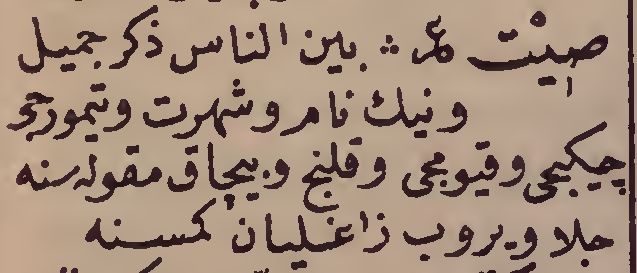 صِيْت عر ∴ بين الناس ذكر جميل
ونيك نام وشهرت وتيمورجى
چكيجى وقيومجى وقلنج وبيچاق مقوله سنه
جلا ويروب زاغليان كمسنه